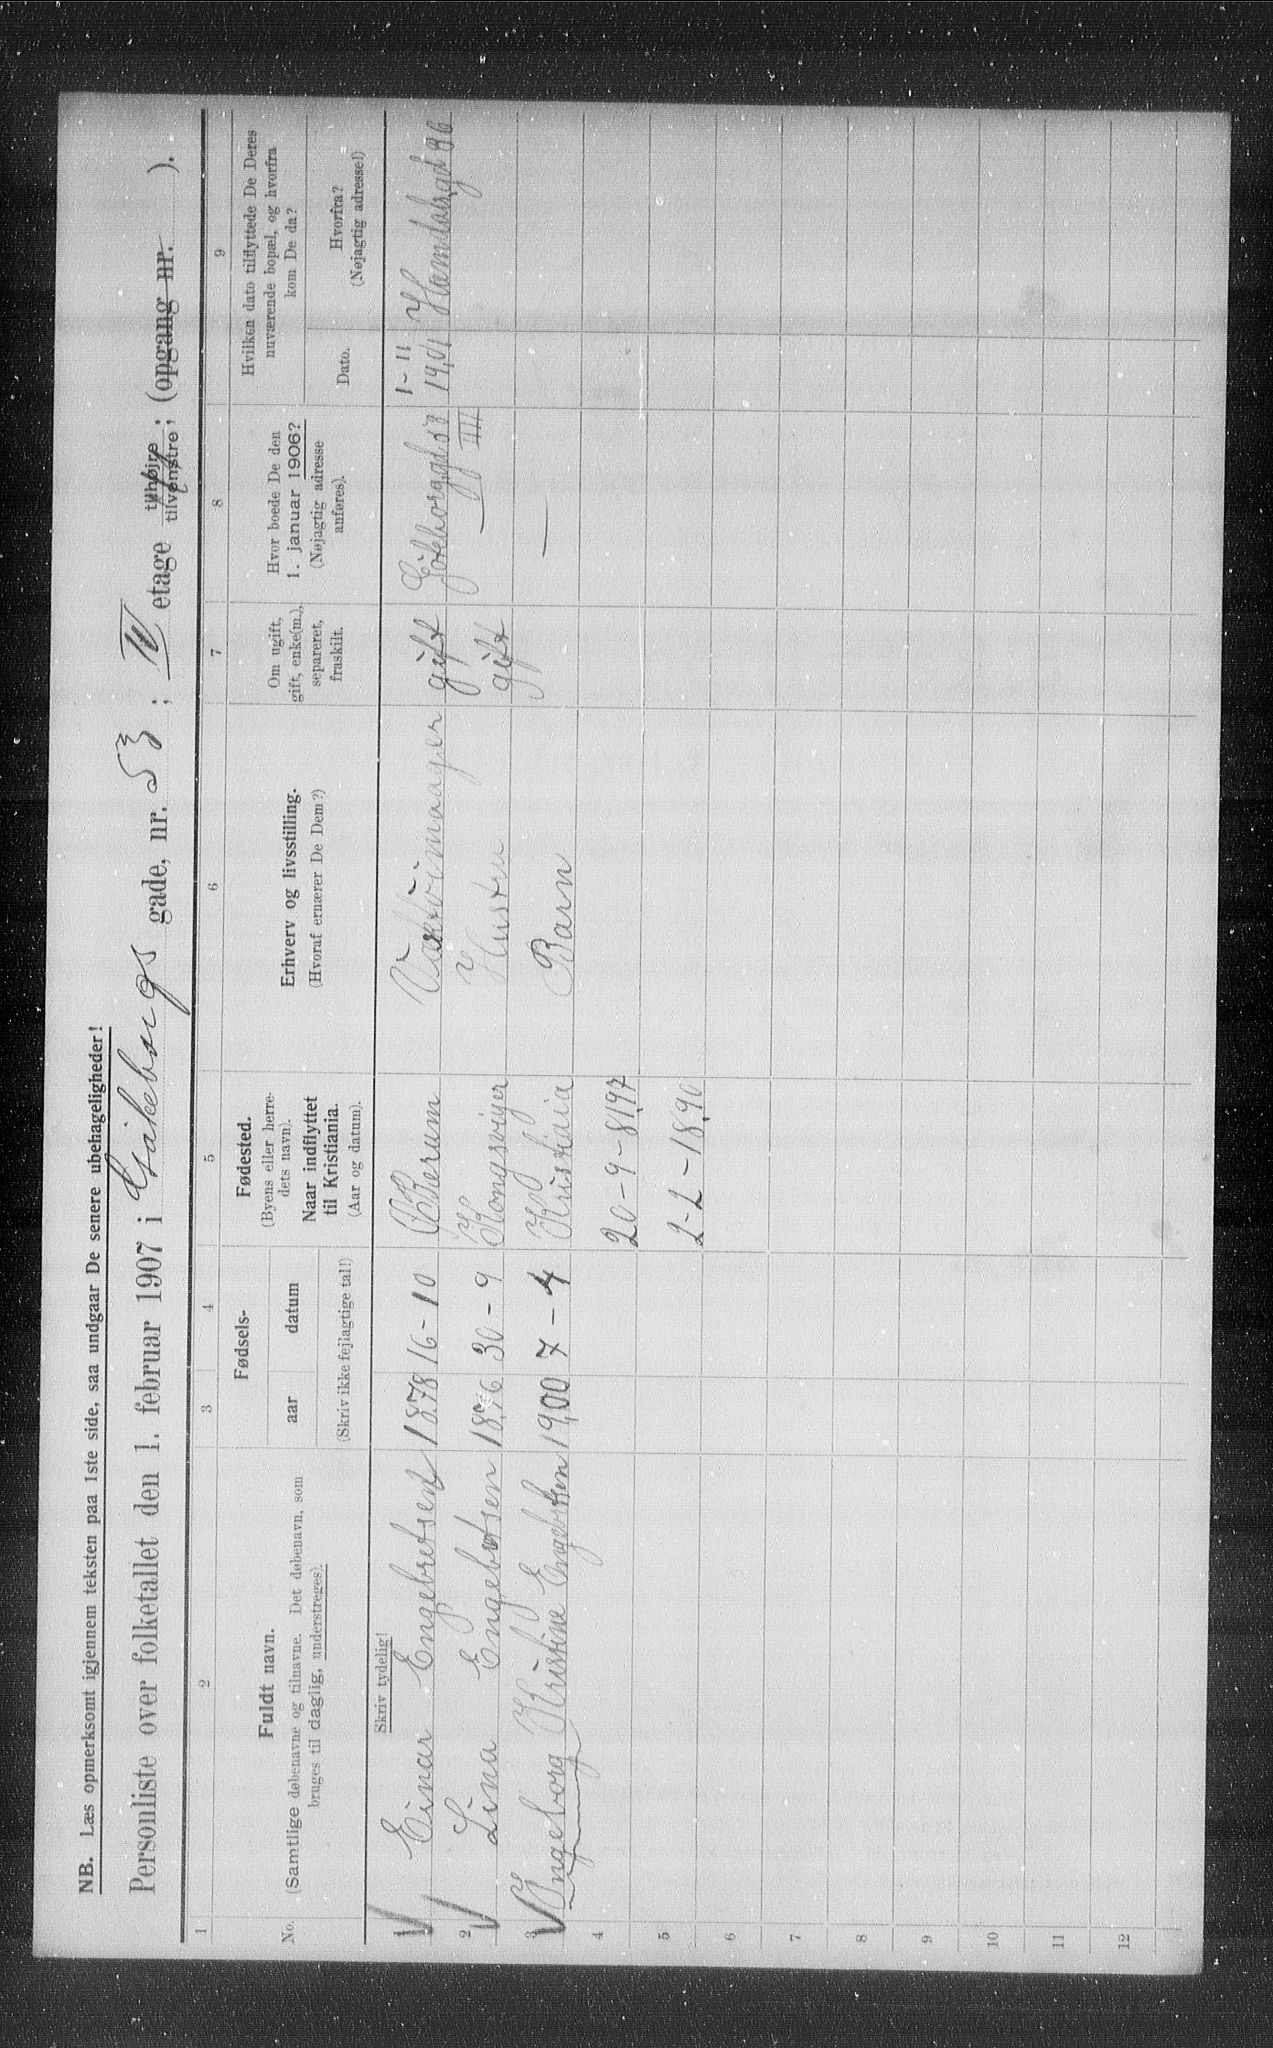 NB. Læs opmerksomt igjennem teksten paa 1ste side, saa undgaar De senere ubehageligheder!
Personliste over folketallet den 1. februar 1907 i Gøteborgs gade, nr. 53; IV etage tilhøjre tilvenstre; (opgang nr. ).
1 2 3 4 5 6 7 8 9
No.
Fuldt navn.
(Samtlige døbenavne og tilnavne. Det døbenavn, som
bruges til daglig, understreges).
Skriv tydelig!
Fødsels-
aar datum
(Skriv ikke fejlagtige tal!)
Fødested.
(Byens eller herre-
dets navn).
Naar indflyttet
til Kristiania.
(Aar og datum).
Erhverv og livsstilling.
(Hvoraf ernærer De Dem?)
Om ugift,
gift, enke(m.),
separeret,
fraskilt.
Hvor boede De den
1. januar 1906?
(Nøjagtig adresse
anføres).
Hvilken dato tilflyttede De Deres
nuværende bopæl, og hvorfra
kom De da?
Dato.
Hvorfra?
(Nøjagtig adresse!)
1 Einar Engebretsen 1878 16-10 Bærum gift Gøteborggd 53 IIII 1-11 1901
2 Lina Engebretsen 1876 30-9 Kongsvinger Hustru gift —
3 Ingeborg Kristine Engebretsen 1900 7-4 Kristiania Barn —
4 20-9-8197
5 2-2-1890
6
7
8
9
10
11
12